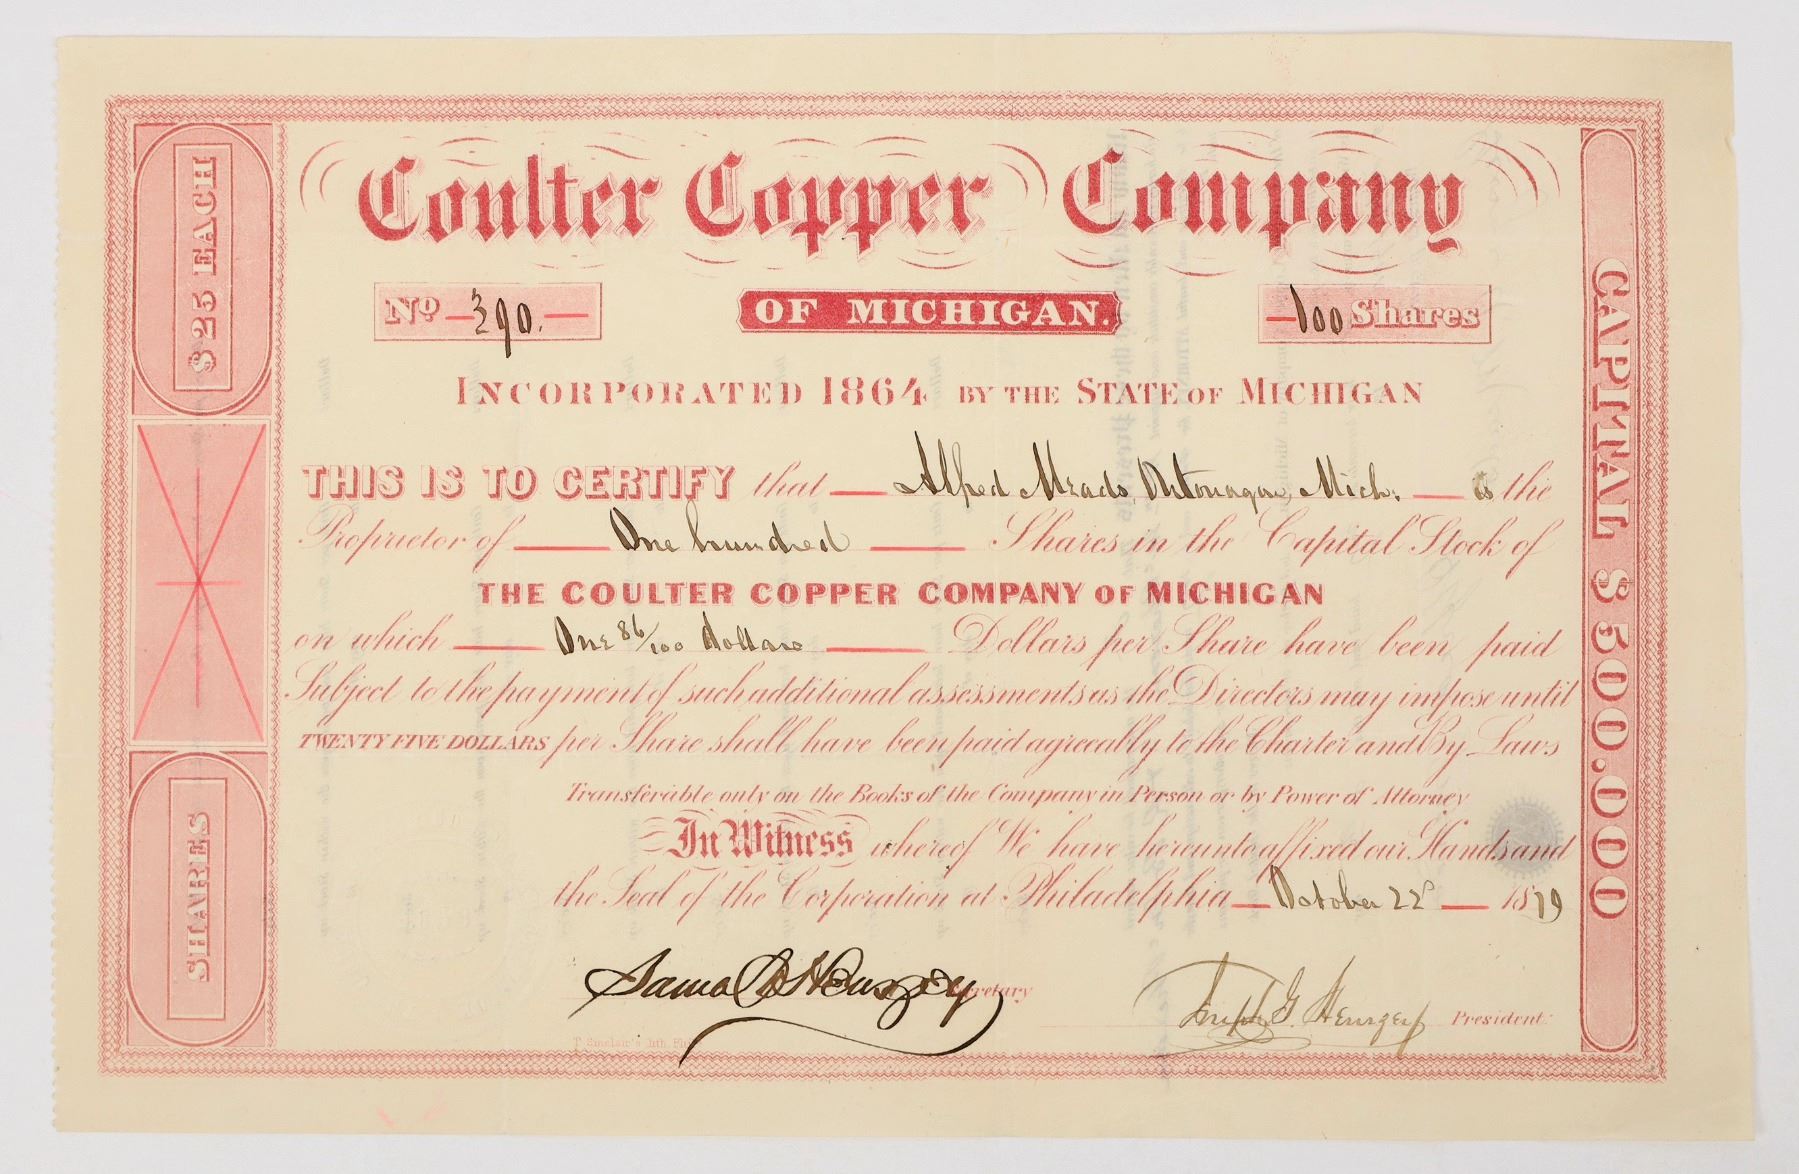 Coulter Copper Company
No 390.
OF MICHIGAN.
100 Shares
INCORPORATED 1864 BY THE STATE OF MICHIGAN
THIS IS TO CERTIFY that Alfred Meads, Ontonagon, Mich: is the
Proprietor of One hundred Shares in the Capital Stock of
THE COULTER COPPER COMPANY OF MICHIGAN
on which One 86/100 Dollars Dollars per Share have been paid
Subject to the payment of such additional assessments as the Directors may impose until
TWENTY FIVE DOLLARS per Share shall have been paid agreeably to the Charter and By Laws
Transferable only on the Books of the Company in Person or by Power of Attorney
In Witness whereof We have hereunto affixed our Hands and
the Seal of the Corporation at Philadelphia October 22d 1879
Secretary
Joseph G. Henszey President
T. Sinclair's lith. Phila
$25 EACH
SHARES
CAPITAL $500.000